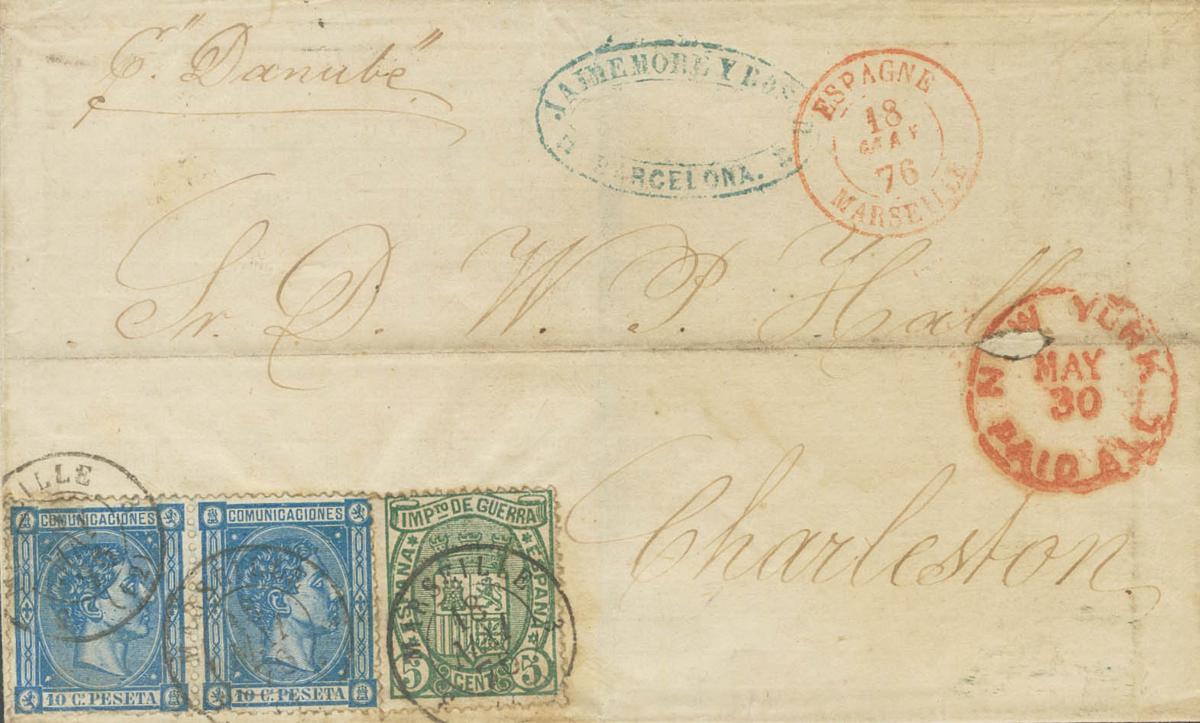 pr. "Danube"
JAIME MORÉ Y BOS
BARCELONA.
ESPAGNE
18
MAI
76
MARSEILLE
Sr. D. W. P. Hall
NEW YORK
MAY
30
PAID ALL
Charleston
COMUNICACIONES
10 Cs. PESETA
COMUNICACIONES
10 Cs. PESETA
IMPTO DE GUERRA
ESPAÑA ESPAÑA
5 CENT 5
MARSEILLE
18
MARSEILLE